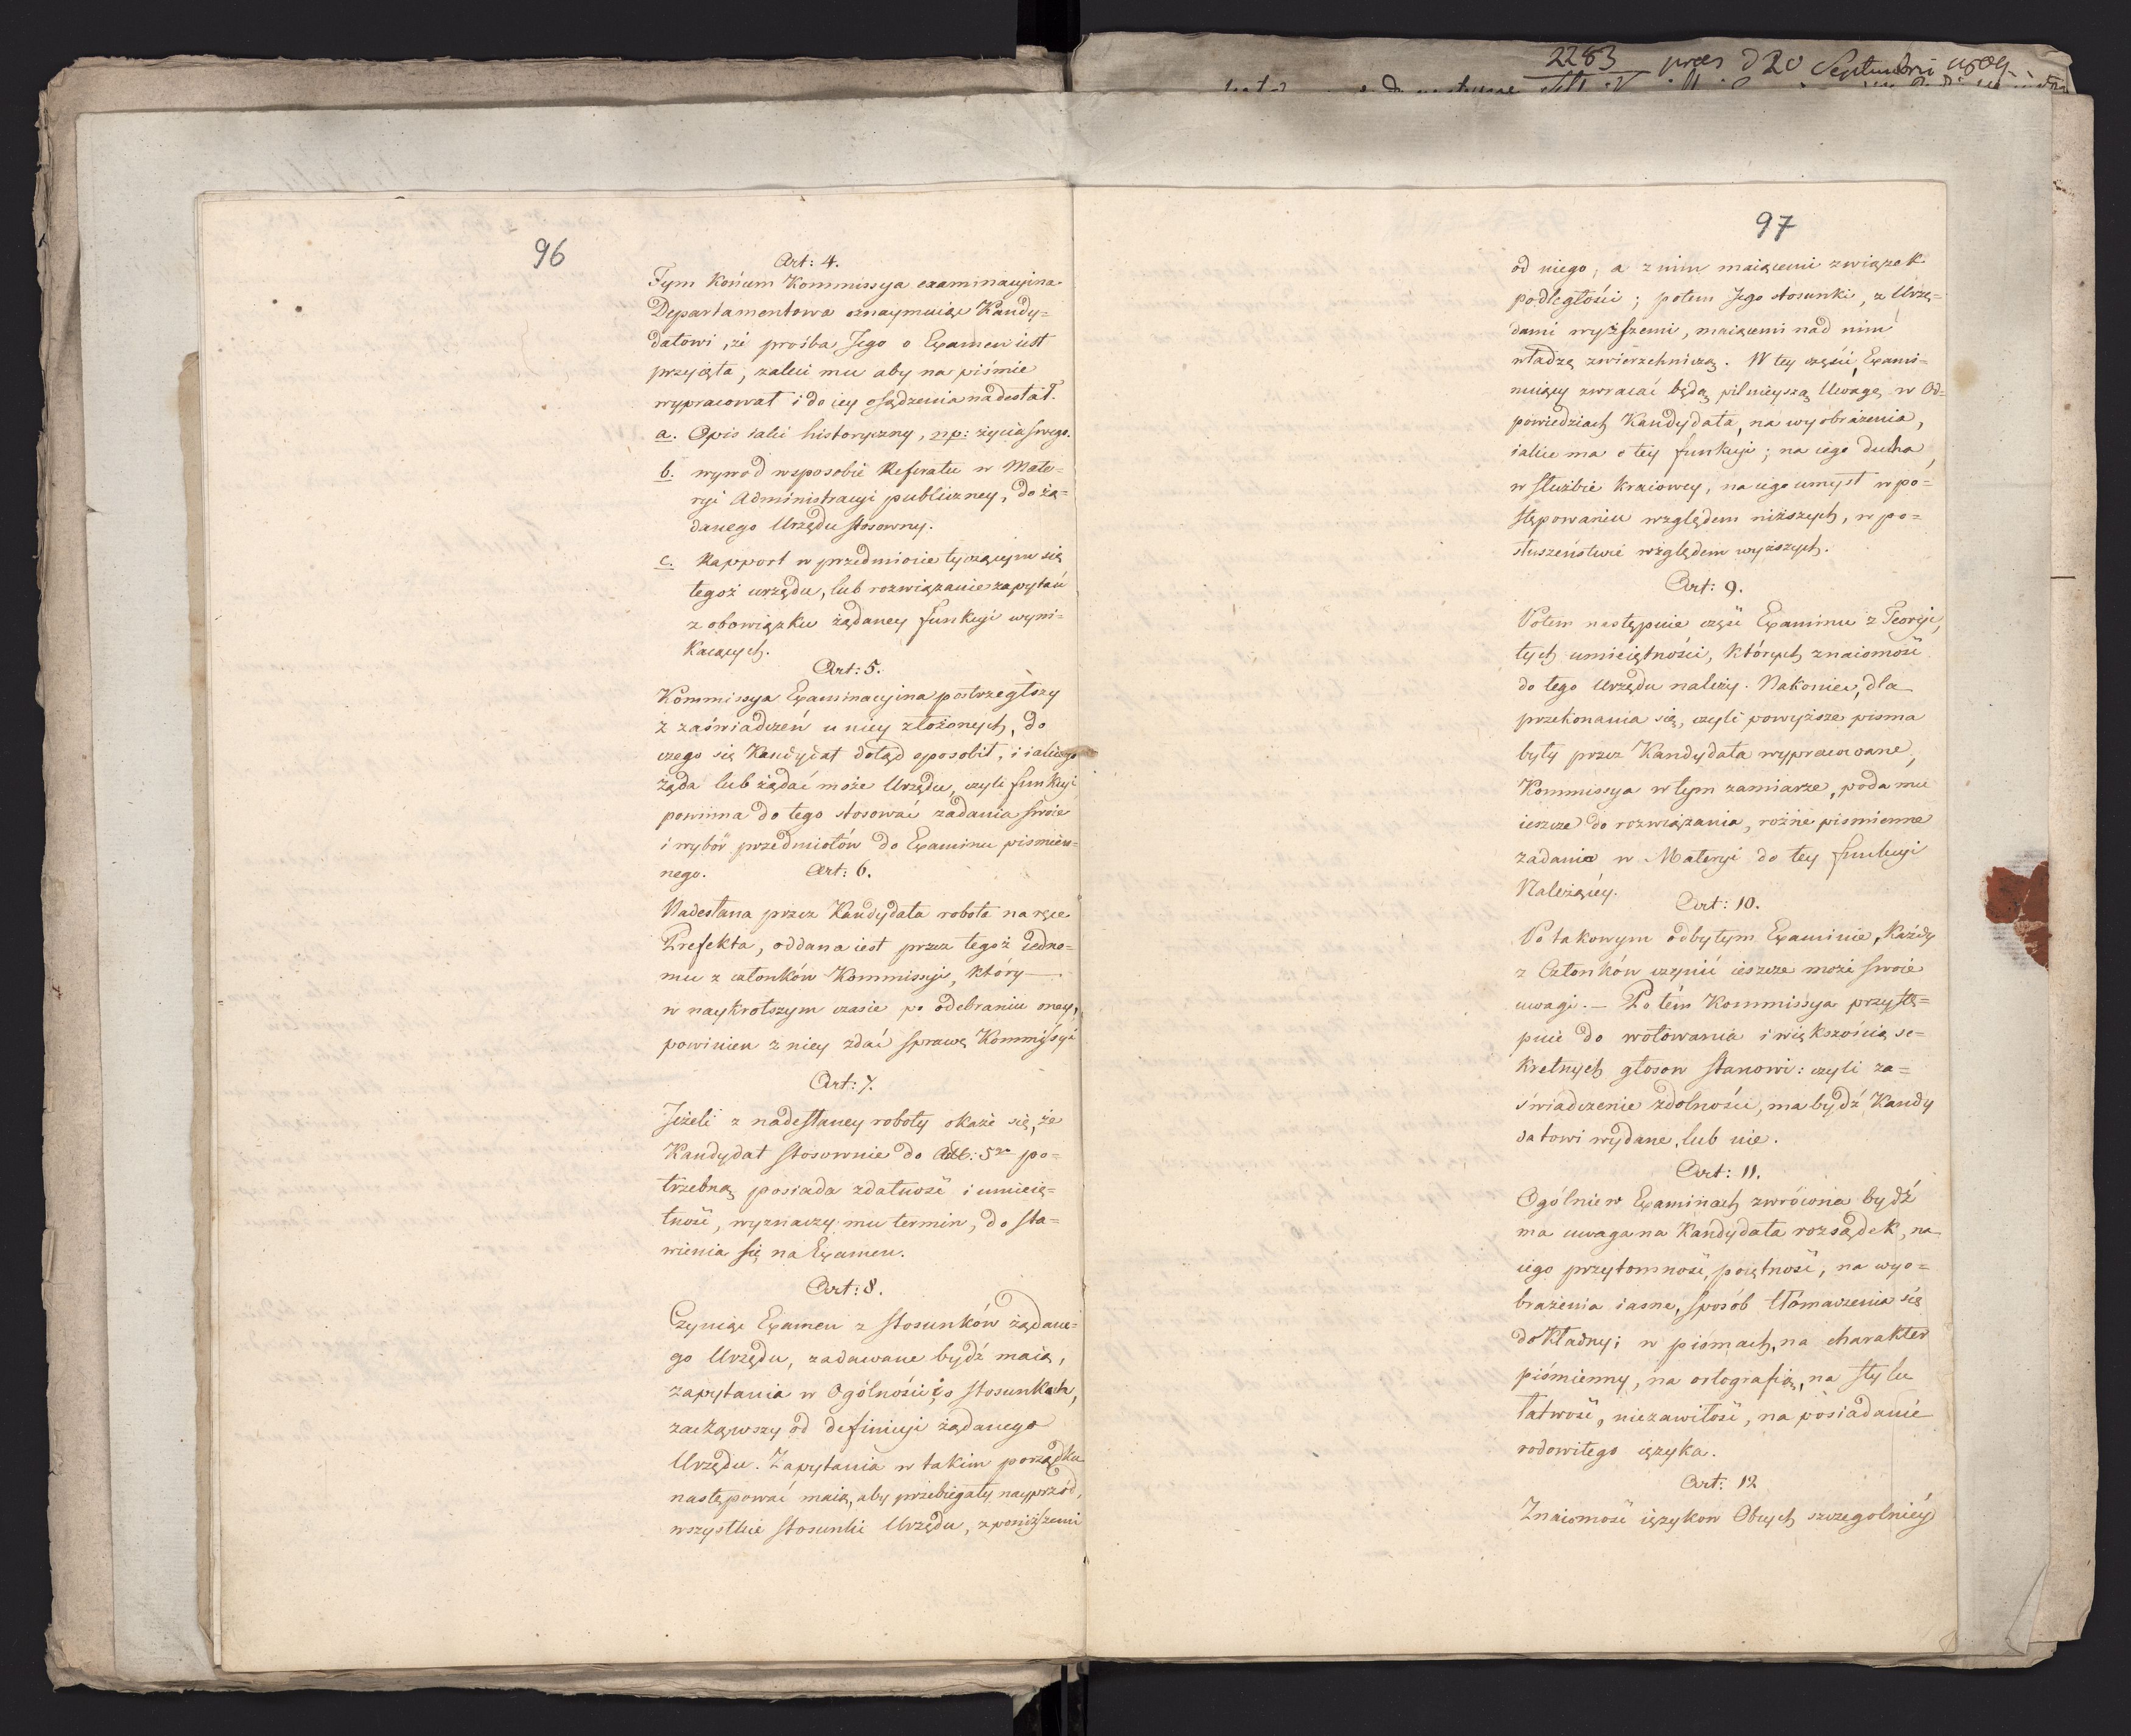 2283 pres d 20 Septembri 1809
96
Art: 4.
Tym Końcem Kommissya examinacyina
Departamentowa oznaymuiąc Kandy=
datowi, że prośba Jego o Examen iest
przyięta, zaleci mu aby na piśmie
wypracował i do iey osądzenia nadesłał.
a. Opis iaki historyczny, np: życia swego.
b. wywod wsposobie Referatu w Mate=
ryi Administracyi publiczney, do żą=
danego Urzędu stosowny.
c. Rapport w przedmiocie tyczącym się
tegoż urzędu, lub rozwiązanie zapytań
z obowiązku żądaney funkcyi wyni=
kaiących.
Art: 5.
Kommissya Examinacyina postrzegłszy
z zaświadczeń u niey złożonych, do
czego się Kandydat dotąd sposobił, i iakiego
żąda lub żądać może Urzędu, czyli funkcyi
powinna do tego stosować zadania swoie
i wybór przedmiotów do Examinu pismien=
nego.
Art: 6.
Nadesłana przez Kandydata robota na ręce
Prefekta, oddana iest przez tegoż iedno=
mu z członków Kommissyi, który
w naykrotszym czasie po odebraniu oney,
powinien z niey zdać sprawę Kommissyi
Art: 7.
Jeżeli z nadesłaney roboty okaże się, że
Kandydat stosownie do Art: 5go po=
trzebną posiada zdatność i umieię=
tność, wyznaczy mu termin, do sta=
wienia się na Examen.
Art: 8.
Czyniąc Examen z stosunków żądane=
go Urzędu, zadawane bydź maią,
zapytania w Ogólności o stosunkach,
zacząwszy od definicyi żądanego
Urzędu. Zapytania w takim porządku
następować maią, aby przebiegały nayprzód,
wszystkie stosunki Urzędu, z poniższemi
97
od niego, a z nim maiącemi związek
podległości; potem Jego stosunki, z Urzę=
dami wyższemi, maiącemi nad nim
władzę zwierzchniczą. W tey części, Exami=
nuiący zwracać będą pilnieyszą Uwagę, w Od=
powiedziach Kandydata, na wyobrażenia,
iakie ma o tey funkcyi; na iego ducha,
w służbie kraiowey, na iego umysł w po=
stępowaniu względem niższych, w po=
słuszeństwie względem wyższych.
Art: 9.
Potem następuie część Examinu z Teoryi,
tych umieiętności, których znaiomość
do tego Urzędu należy. Nakoniec, dla
przekonania się, czyli powyższe pisma
były przez Kandydata wypracowane,
Kommissya w tym zamiarze, poda mu
ieszcze do rozwiązania, rożne pismienne
zadania w Materyi do tey funkcyi
Należącey.
Art: 10.
Po takowym odbytym Examinie, Każdy
z Członków czynić ieszcze może swoie
uwagi. — Potém Kommissya przystę=
puie do wotowania i większością se=
kretnych głosow stanowi: czyli za=
świadczenie zdolności, ma bydź Kandy
datowi wydane, lub nie.
Art: 11.
Ogólnie w Examinach zwrócona bydź
ma uwaga na Kandydata rozsądek, na
iego przytomność, poiętność, na wyo=
brażenia iasne, sposób tłómaczenia się
dokładny; w pismach, na charakter
piśmienny, na ortografią, na stylu
łatwość, niezawiłość, na posiadanie
rodowitego ięzyka.
Art: 12
Znaiomość ięzykow Obcych szczegolniéy